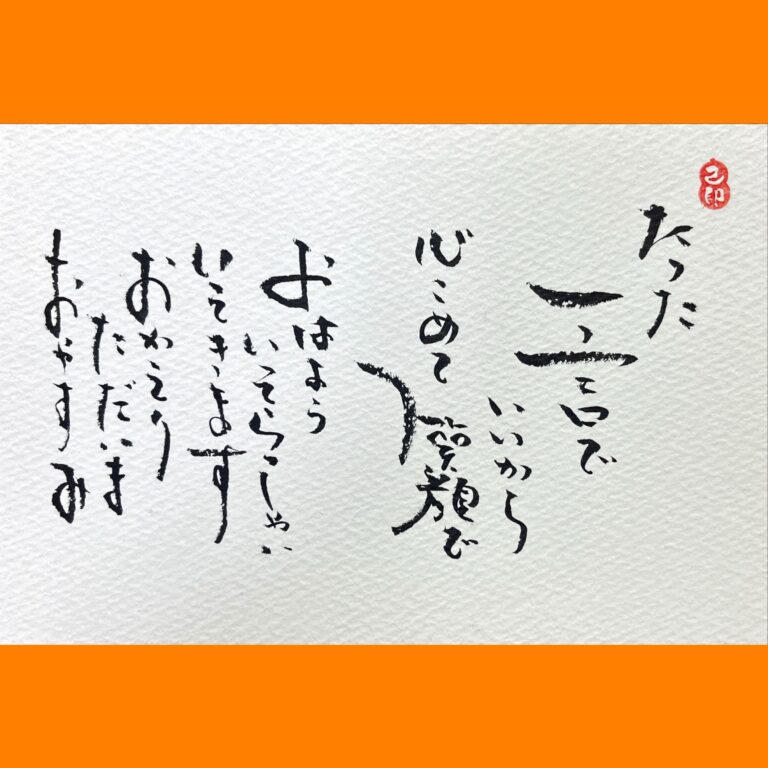 たった
一言で
いいから
心こめて
笑顔で
おはよう
いってらっしゃい
いってきます
おかえり
ただいま
おやすみ